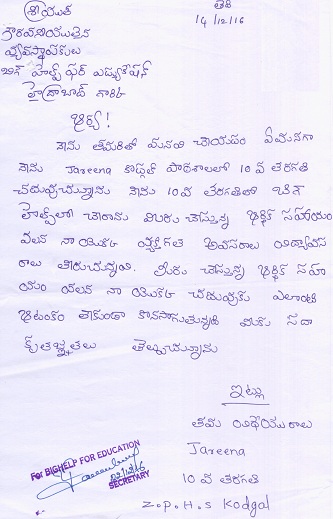 శ్రీయుత
తేది
14/12/16
గౌరవనీయులైన
వ్యవస్థాపకులు
బిగ్ హెల్ప్ ఫర్ ఎడ్యుకేషన్
హైద్రాబాద్ గారికి
ఆర్య!
నేను తమరితో మనవి చేయునది ఏమనగా
నేను Jareena కొడ్గల్ పాఠశాలలో 10వ తరగతి
చదువుచున్నాను నేను 10వ తరగతిలో బిగ్
హెల్ప్‌లో చేరాను మీరు చేస్తున్న ఆర్థిక సహాయం
వలన నా యొక్క వ్యక్తిగత అవసరాలు
రాలు తీరుచున్నవి. మీరు చేస్తున్న ఆర్థిక సహా
యం వలన నా యొక్క చదువుకు ఎలాంటి
ఆటంకం లేకుండా కొనసాగుతున్నది మీకు సదా
కృతజ్ఞతలు తెల్పుచున్నాను
ఇట్లు
తమ విధేయురాలు
Jareena
10 వ తరగతి
Z.P.H.S Kodgal
For BIGHELP FOR EDUCATION
SECRETARY